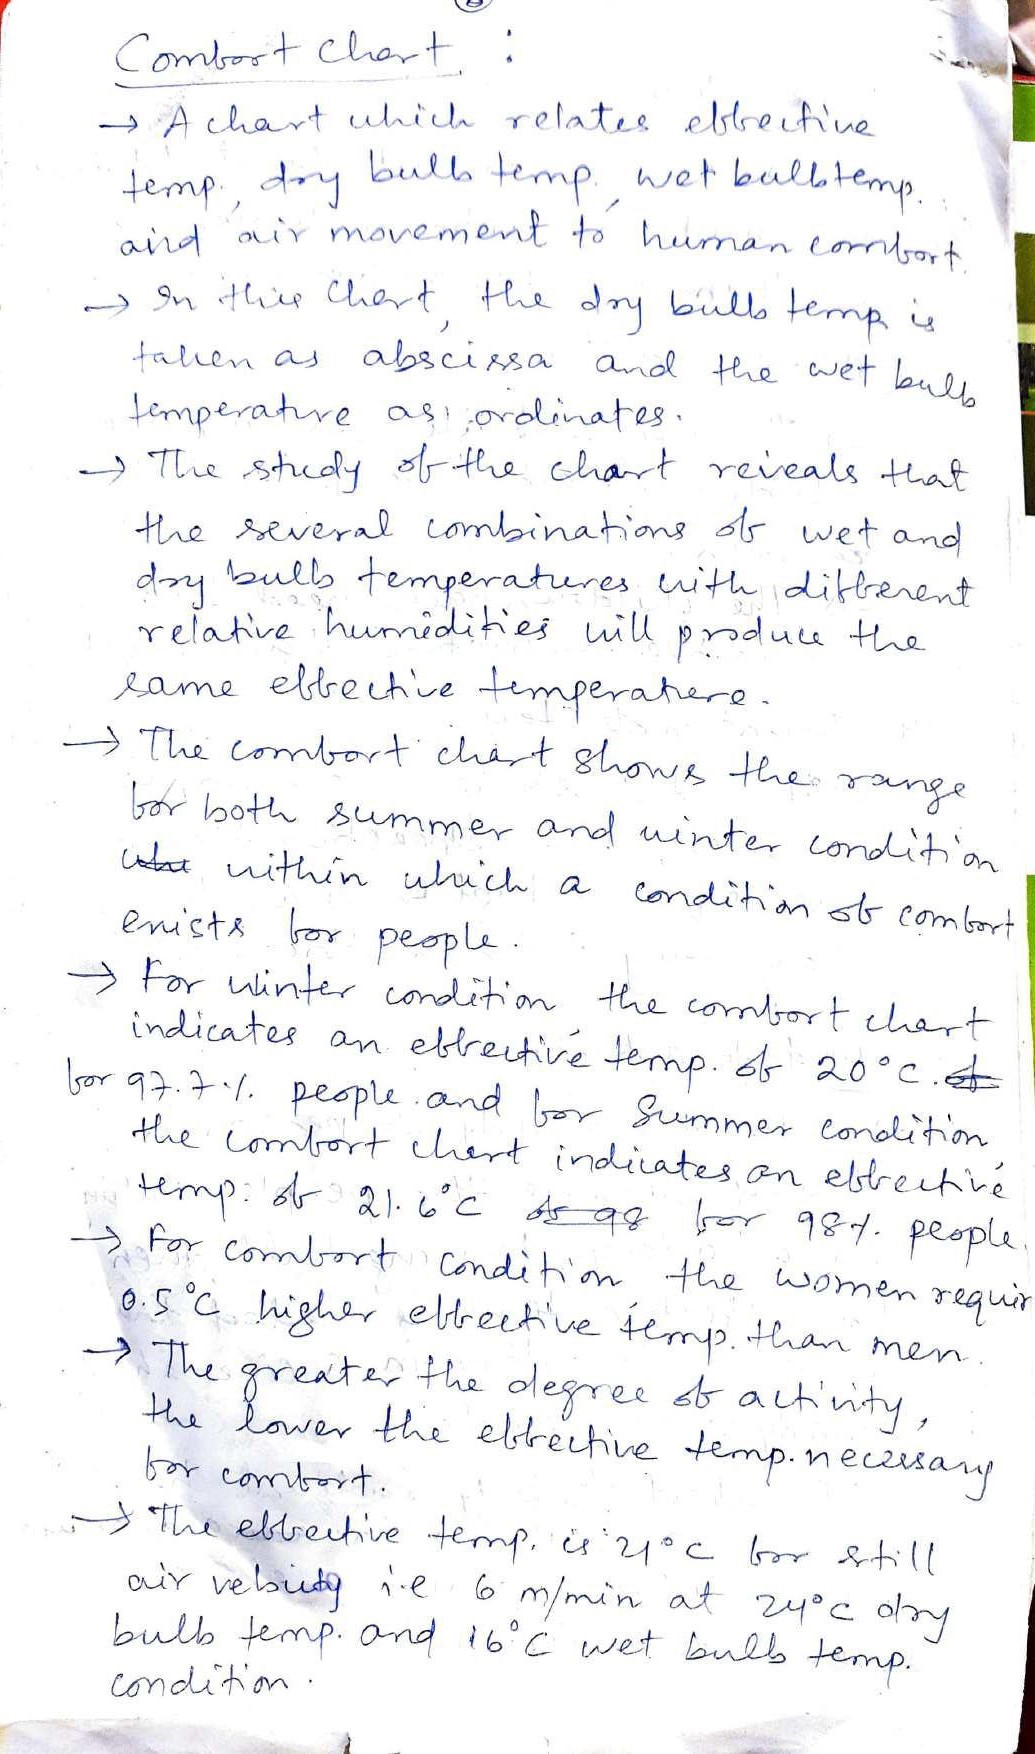 Comfort Chart :
→ A chart which relates effective
temp., dry bulb temp, wet bulb temp.
and air movement to human comfort.
→ In this Chart, the dry bulb temp is
taken as abscissa and the wet bulb
temperature as ordinates.
→ The study of the chart reveals that
the several combinations of wet and
dry bulb temperatures with different
relative humidities will produce the
same effective temperature.
→ The comfort chart shows the range
for both summer and winter condition
within which a condition of comfort
exists for people.
→ For Winter condition the comfort chart
indicates an effective temp. of 20°C.
for 97.7% people and for Summer condition
the comfort chart indicates an effective
temp. of 21.6°C of 98 for 98% people.
→ For comfort condition the women requir
0.5°C higher effective temp. than men.
→ The greater the degree of activity,
the lower the effective temp. necessary
for comfort.
→ The effective temp. is 21°C for still
air velocity i.e 6 m/min at 24°C dry
bulb temp. and 16°C wet bulb temp.
condition.